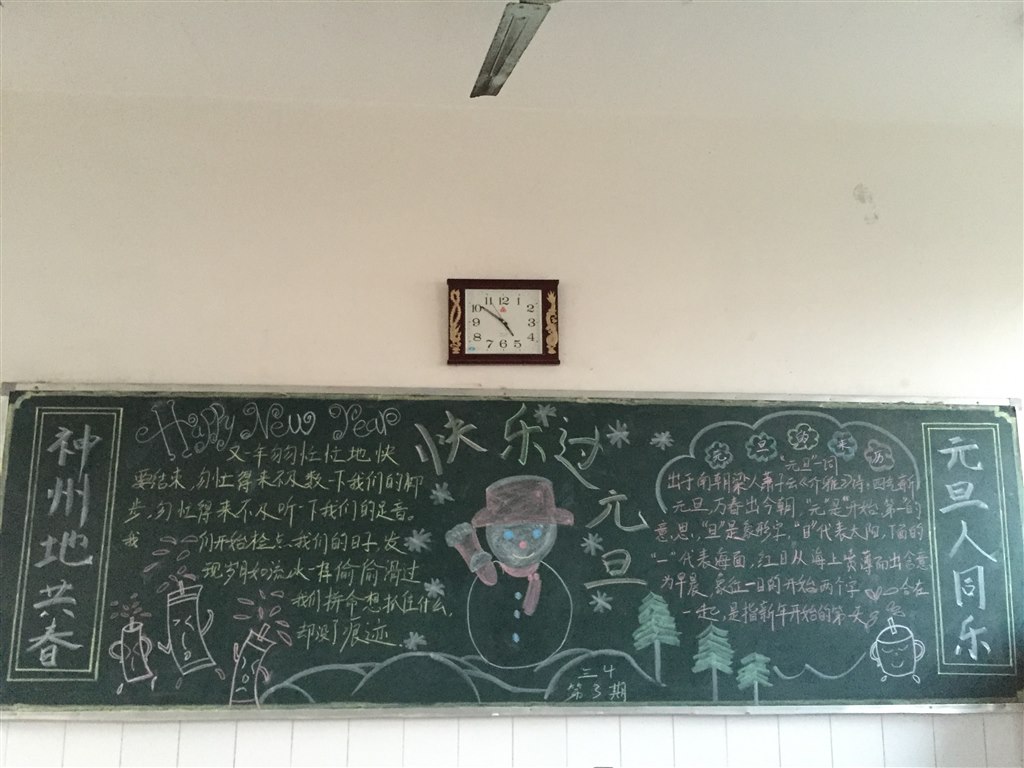 神州地共春
Happy New Year
又一年匆忙忙地快
要结束，匆忙得来不及数一下我们的脚
步，匆忙得来不及听一下我们的足音。
我们开始检点我们的日子，发
现岁月如流水一样偷偷滑过
我们拼命想抓住什么，
却没了痕迹
快乐过
元
旦
三4
第3期
元旦的来历
"元旦"一词
出于南朝梁人萧子云《介雅》诗：四气新
元旦，万春出今朝，"元是"开始"第一"的
意思，"旦"是象形字，"日"代表太阳，下面的
"一"代表海面，红日从海上喷薄而出含意
为早晨，象征一日的开始两个字合在
一起，是指新年开始的第一天
元旦人同乐
11 12 1
10 2
9 3
8 4
7 6 5